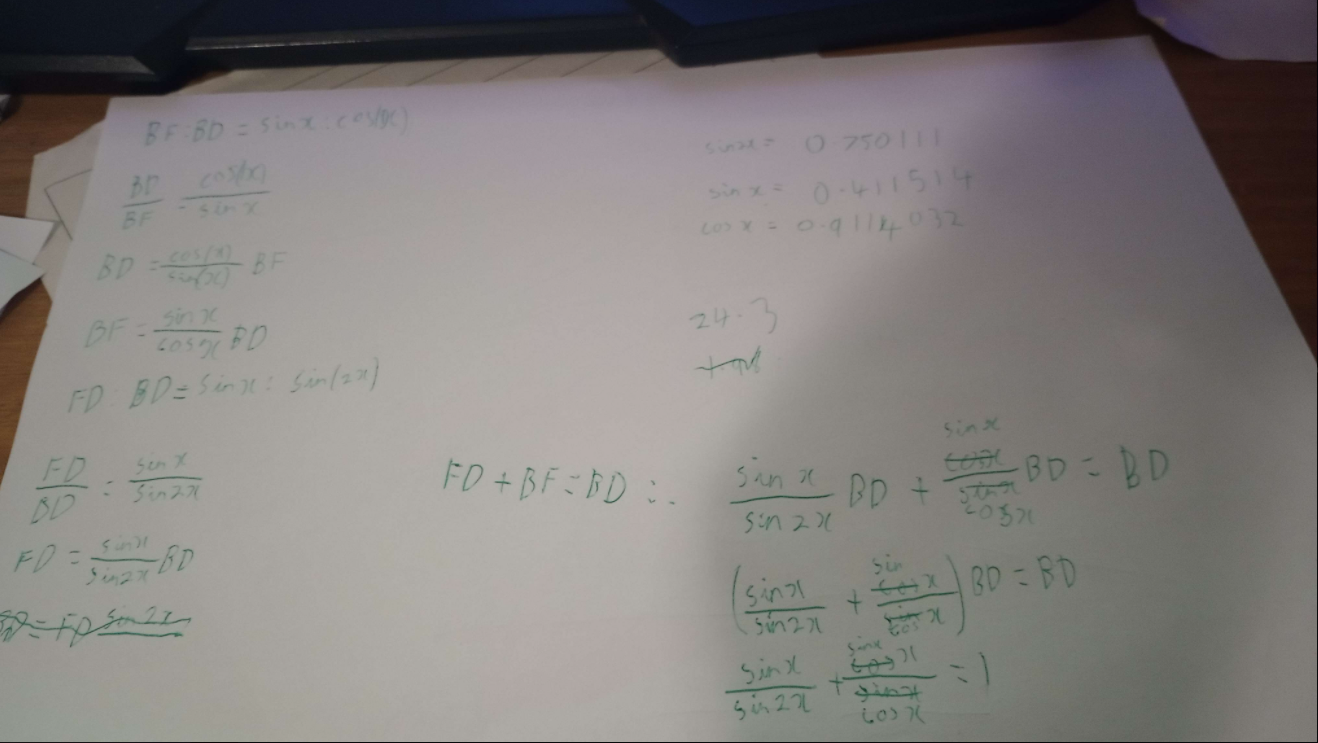 BF:BD = sinx : cos(x)
BD/BF = cos(x)/sin x
BD = cos(x)/sin(x) BF
BF = sin x/cos x BD
FD : BD = sin x : sin(2x)
FD/BD = sin x/sin 2x
FD = sin x/sin 2x BD
= FD sin 2x
sin x =
sin x = 0.411514
cos x = 0.9114032
24.3
FD + BF = BD ∴ sin x/sin 2x BD + sin x/cos x BD = BD
(sin x/sin 2x + sin x/cos x) BD = BD
sin x/sin 2x + sin x/cos x = 1